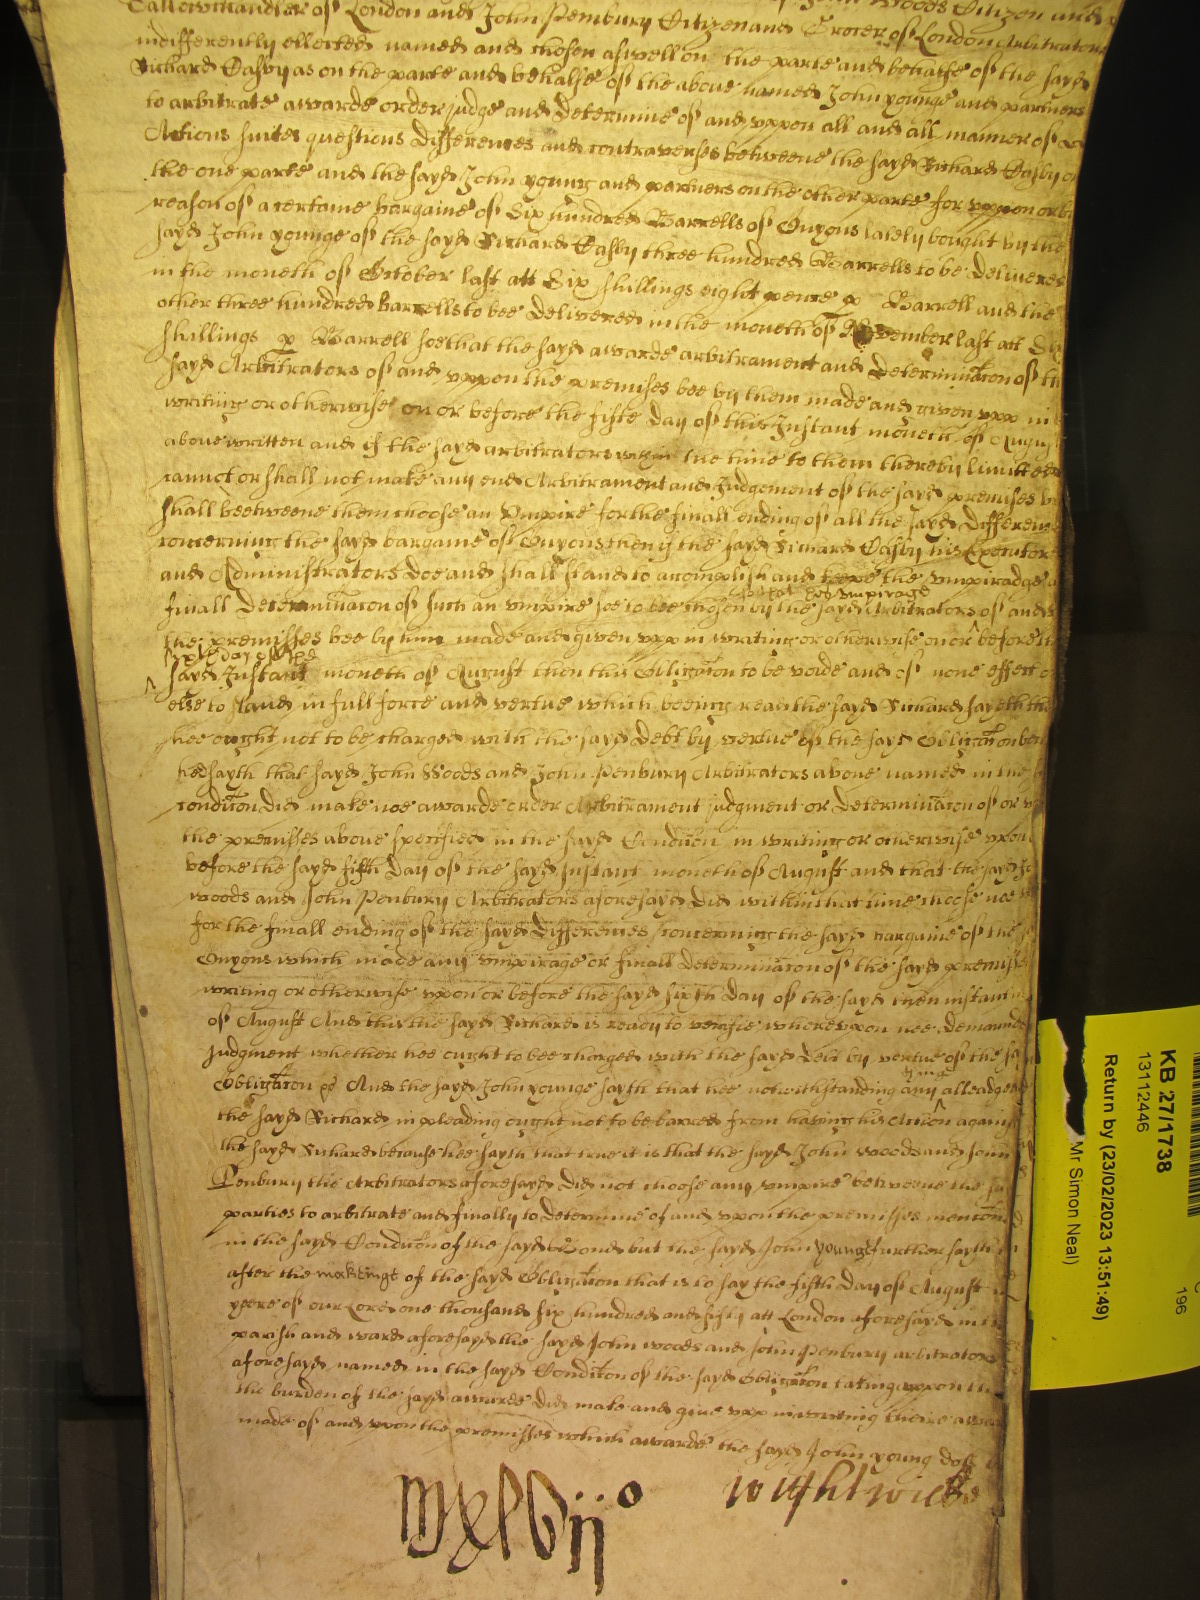 Tallowchandler of London and John Penbury Citizen and Grocer of London Arbitrators
indifferently ellected named and chosen aswell on the parte and behalfe of the sayd
Richard Dasby as on the parte and behalfe of the above named John younge and partners
to arbitrate awarde order judge and determine of and uppon all and all manner of
Actions suites questions differences and contraverses betweene the sayd Richard Dasby of
the one parte and the sayd John young and partners on the other parte for uppon or by
reason of a certaine bargaine of Six hundred Barrells of Onyons lately bought by the
sayd John younge of the sayd Richard Dasby three hundred Barrells to be delivered
in the moneth of October last att Six shillings eight pence p Barrell and the
other three hundred Barrells to bee delivered in the moneth of November last att Six
shillings p Barrell soe that the sayd awarde arbitrament and determinacon of th
sayd Arbitrators of and uppon the premises bee by them made and given upp in
writing or otherwise on or before the fifte day of this Instant moneth of Augu
above written and if the sayd arbitrators within the time to them thereby limitted
cannot or shall not make any end Arbitrament and Judgement of the sayd premises
shall beetweene them choose an Umpire for the finall ending of all the sayd differen
concerning the sayd bargaine of Onyons then if the sayd Richard Dasby his Executors
and Administrators doe and shall stand to accomplish and keepe the umpiradge
soe that his umpirage
finall determinacon of such an umpire soe to bee chosen by the sayd Arbitrators of and
the premisses bee by him made and given upp in writing or otherwise on or before
sixth day of the
sayd Instant moneth of August then this Obligacon to be voide and of none effect or
else to stand in full force and vertue which beeing read the sayd Richard sayeth tha
hee ought not to be charged with the sayd debt by vertue of the sayd Obligacon
hee sayth that sayd John Woods and John Penbury Arbitrators above named in the
condicon did make noe awarde order Arbitrament judgment or determinacon of or
the premisses above specified in the sayd Condicon in writing or otherwise upon
before the sayd fifth day of the sayd Instant moneth of August and that the sayd
woods and John Penbury Arbitrators aforesayd did within that time choose noe
for the finall ending of the sayd differences concerning the sayd bargaine of the
Onyons which made any umpirage or finall determinacon of the sayd premisses
writing or otherwise upon or before the sayd sixth day of the sayd then instant
of August And this the sayd Richard is ready to verifie whereupon hee demaunds
Judgment whether hee ought to bee charged with the sayd debt by vertue of the
Obligacon And the sayd John younge sayth that hee notwithstanding any alleadged
the sayd Richard in pleading ought not to be barred from having his Accion against
the sayd Richard because hee sayth that true it is that the sayd John woods and John
Penbury the Arbitrators aforesayd did not choose any umpire betweene the
parties to arbitrate and finally to determine of and upon the premisses mencon
in the sayd Condicon of the sayd bond but the sayd John younge further sayth
after the makeing of the sayd Obligacon that is to say the fifth day of August
yeere of our Lord one thousand six hundred and fifty att London aforesayd in
parish and ward aforesayd the sayd John woods and John Penbury arbitrators
aforesayd named in the sayd Condicon of the sayd Obligacon taking uppon
the burden of the sayd awarde did make and give upp in writing theire awa
made of and upon the premisses which awarde the sayd John young doth
mxlvijo wightwicke
KB 27/1738
13112446
Return by (23/02/2023 13:51:49)
Mr Simon Neal)
196